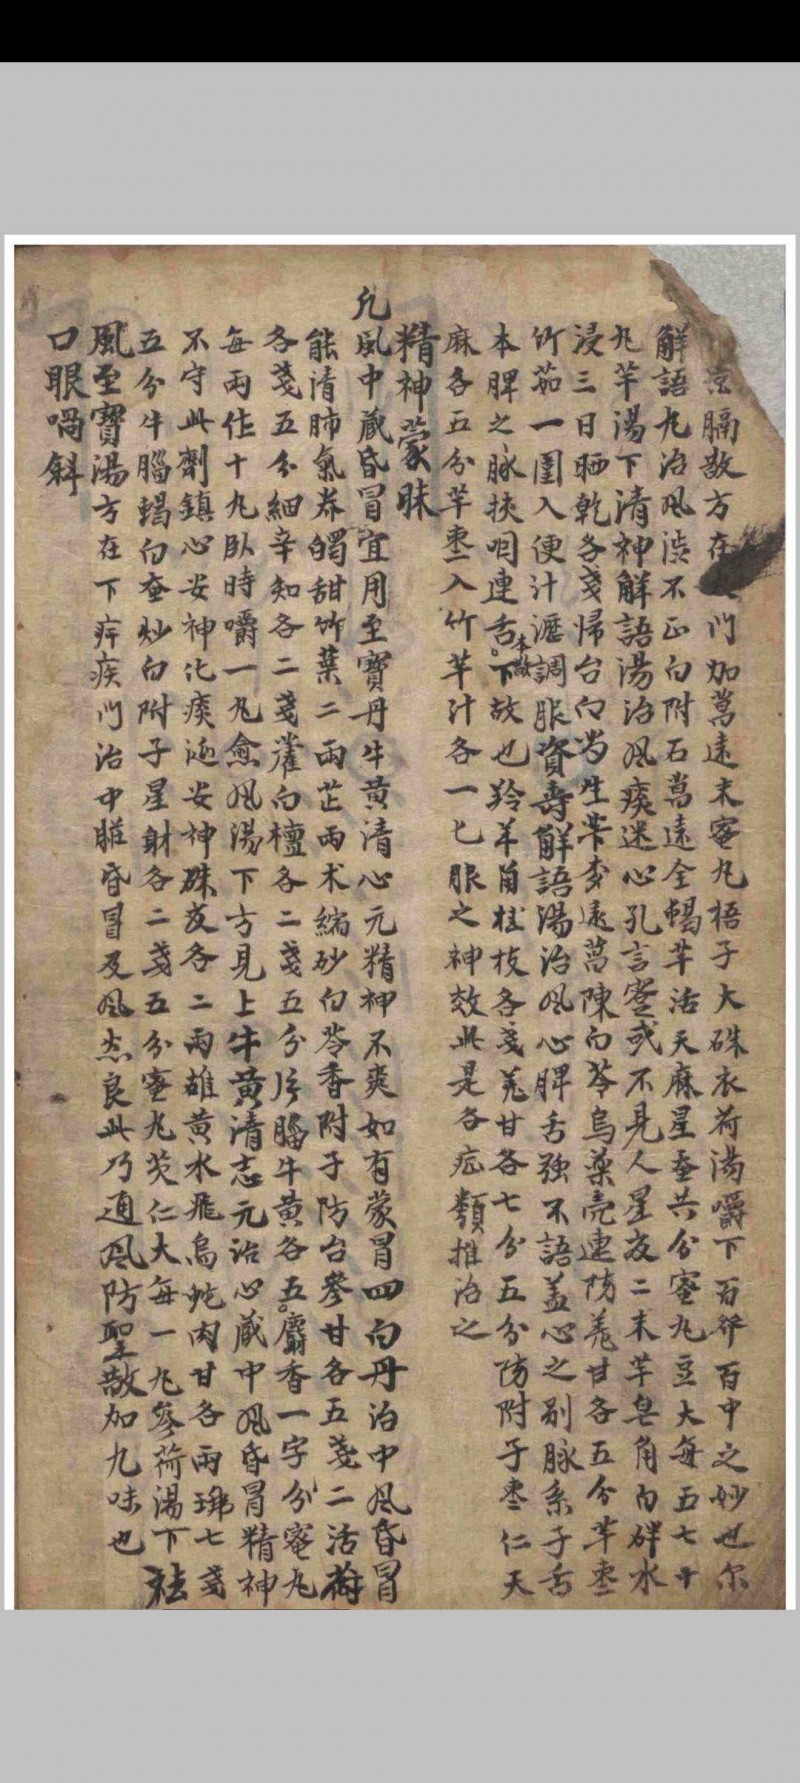 凉膈散方在門加菖遠末蜜丸梧子大硃衣荷湯嚼下百發百中之妙也尔
解語丸治风澁不正白附石菖遠全蝎羊活天麻星蚕共分蜜丸豆大每五七十
丸芊湯下清神解語湯治风痰迷心孔言蹇或不見人星夏二末芊皂角白礬水
浸三日晒乾各戔歸台白芍生芐麥遠菖陳白苓烏藥壳連防羌甘各五分芊枣
竹茹一團入便汁瀝調服資壽解語湯治风心脾舌強不語盖心之别脉系于舌
本脾之脉挾咽連舌本散下故也羚羊角桂枝各戔羌甘各七分五分防附子枣仁天
麻各五分芊枣入竹芊汁各一匕服之神效此是各症類推治之
精神蒙昧
凡风中藏昏冒宜用至寶丹牛黄清心元精神不爽如有蒙冒四白丹治中风昏冒
能清肺氣养魄甜竹葉二兩芷兩术縮砂白苓香附子防台參甘各五戔二活荷
各戔五分細辛知各二戔藿白檀各二戔五分片腦牛黄各五麝香一字分蜜丸
每兩作十丸臥時嚼一丸愈风湯下方見上牛黄清志元治心藏中风昏冒精神
不守此劑鎮心安神化痰逐安神硃夜各二兩雄黄水飛烏蛇肉甘各兩琥七戔
五分牛腦蝎白蚕炒白附子星射各二戔五分蜜丸芡仁大每一丸參荷湯下祛
風至寶湯方在下痺疾门治中脏昏冒及风恣良此乃通风防聖散加九味也
口眼喎斜